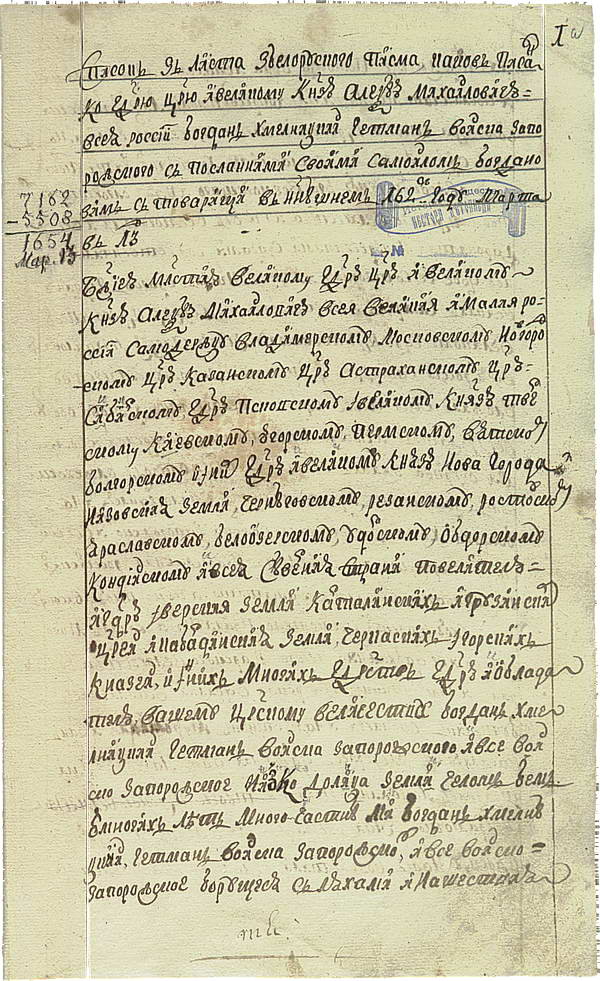 1
Списокъ зъ листа з белорусского писма каковъ писа
ко Гдрю Црю и великому Кнзю Алеѯѣю Михайловичю
всея россіи Богданъ Хмелницкий Гетманъ войска запо
рожского съ посланниками своими Самойломъ Богдано
вимъ съ товарищи въ нинѣшнемъ 162 году марта
7162
-5508
1654
Мар. 13
Бжіею млстію великому Гдрю Црю и великому
Кнзю Алеѯѣю Михайловичю всея великия и малая ро
ссіи Самодержцу Владимерскому Московскому Новгоро
скому Црю Казанскому Црю Астраханскому Црю
Сибирскому Гдрю Псковскому и великому Кнзю твер
скому Югорскому, Пермскому, Вятско
болгорскому и инихъ Гдрю и великому Кнзю Нова Города
Низовския земли, Черниговскому, резанскому, ростовско
Ярославскому, белоозерскому, Удорскому, Обдорскому
Кондийскому и всея Сѣверния страни повелителю
и Гдрю Иверския земли Карталинскихъ и Грузински
Црей и Кабардинския земли, Черкаскихъ и Горскихъ
Князей, и инихъ многихъ Гдрствъ Гдрю и облада
телю, вашему Црскому величеству Богданъ Хме
лницкий Гетманъ войска запорожского и все вой
ско запорожское низко до лица земли челомъ бемъ
Многихъ лѣтъ Ми Богданъ Хмелни
цкий, Гетманъ войска запорожско, и все войско
запорожское борющеся съ ляхами и нашествия